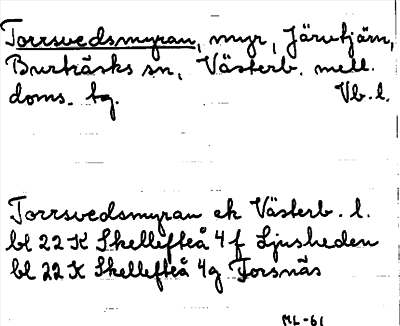 Torrsvedsmyran, myr, Järvtjärn,
Burträsks sn, Västerb. mell.
doms. tg. Vb. l.
Torrsvedsmyran ek Västerb. l.
bl 22 K Skellefteå 4 f Ljusheden
bl 22 K Skellefteå 4g Forsnäs
ML-61